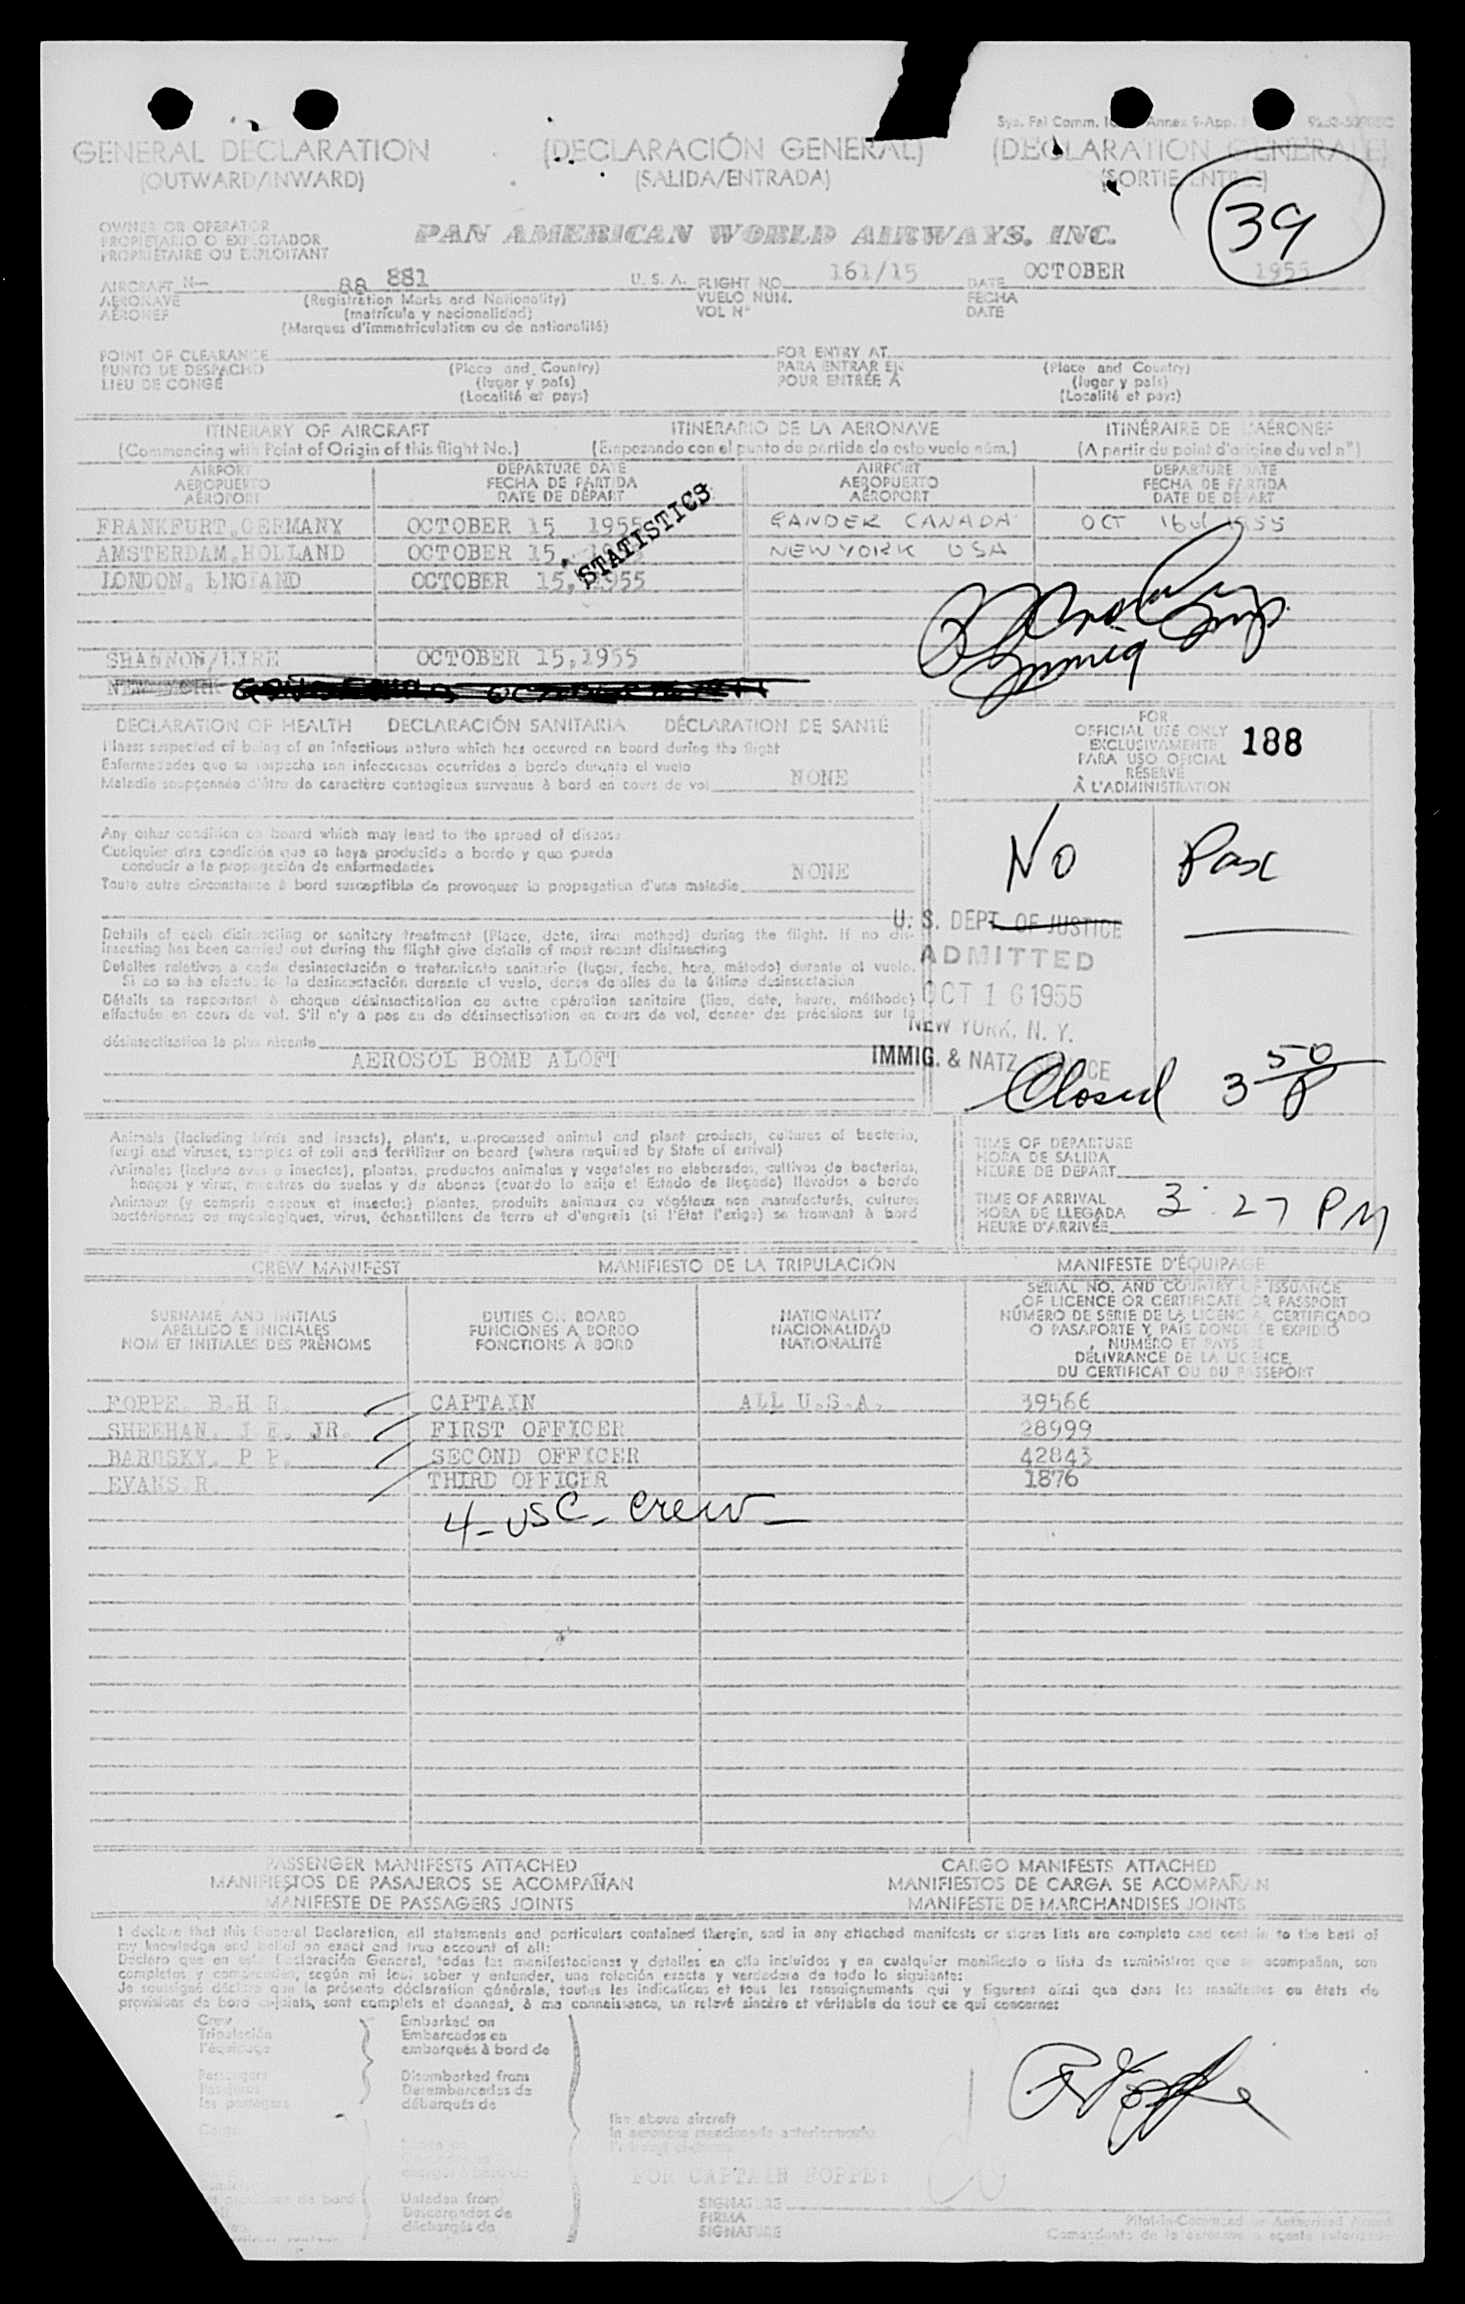 GENERAL DECLARATION (DECLARACIÓN GENERAL) (DECLARATION GENERALE)
(OUTWARD/INWARD) (SALIDA/ENTRADA) (SORTIE/ENTREE)
39
OWNER OR OPERATOR
PROPIETARIO O EXPLOTADOR
PROPRIÉTAIRE OU EXPLOITANT
PAN AMERICAN WORLD AIRWAYS, INC.
AIRCRAFT N— 88 881 U. S. A. FLIGHT NO. 161/15 DATE OCTOBER 1955
AERONAVE (Registration Marks and Nationality) VUELO NÚM. FECHA
AÉRONEF (matrícula y nacionalidad) VOL Nº DATE
(Marques d'immatriculation ou de nationalité)
POINT OF CLEARANCE FOR ENTRY AT
PUNTO DE DESPACHO (Place and Country) PARA ENTRAR EN (Place and Country)
LIEU DE CONGÉ (lugar y país) POUR ENTRÉE A (lugar y país)
(Localité et pays) (Localité et pays)
ITINERARY OF AIRCRAFT ITINERARIO DE LA AERONAVE ITINÉRAIRE DE L'AÉRONEF
(Commencing with Point of Origin of this flight No.) (Empezando con el punto de partida de este vuelo núm.) (A partir du point d'origine du vol nº)
AIRPORT DEPARTURE DATE AIRPORT DEPARTURE DATE
AEROPUERTO FECHA DE PARTIDA AEROPUERTO FECHA DE PARTIDA
AÉROPORT DATE DE DÉPART AÉROPORT DATE DE DÉPART
FRANKFURT, GERMANY OCTOBER 15 1955 GANDER CANADA OCT 16th 1955
AMSTERDAM, HOLLAND OCTOBER 15, 1955 NEW YORK USA
LONDON, ENGLAND OCTOBER 15, 1955
STATISTICS
SHANNON/EIRE OCTOBER 15,1955
NEW YORK
Immig
DECLARATION OF HEALTH DECLARACIÓN SANITARIA DÉCLARATION DE SANTÉ
FOR
OFFICIAL USE ONLY
EXCLUSIVAMENTE
PARA USO OFICIAL
RÉSERVÉ
À L'ADMINISTRATION
188
Illness suspected of being of an infectious nature which has occured on board during the flight
Enfermedades que se sospecha son infecciosas ocurridas a bordo durante el vuelo
Maladie soupçonnée d'être de caractère contagieux survenue à bord en cours de vol NONE
Any other condition on board which may lead to the spread of disease
Cualquier otra condición que se haya producido a bordo y que pueda
conducir a la propagación de enfermedades
Toute autre circonstance à bord susceptible de provoquer la propagation d'une maladie NONE
No Pax
U. S. DEPT. OF JUSTICE
ADMITTED
OCT 16 1955
NEW YORK, N. Y.
IMMIG. & NATZ. SERVICE
Closed 3 50 P
Details of each disinsecting or sanitary treatment (Place, date, time, method) during the flight. If no dis-
insecting has been carried out during the flight give details of most recent disinsecting
Detalles relativos a cada desinsectación o tratamiento sanitario (lugar, fecha, hora, método) durante el vuelo.
Si no se ha efectuado la desinsectación durante el vuelo, dense detalles de la última desinsectación
Détails se rapportant à chaque désinsectisation ou autre opération sanitaire (lieu, date, heure, méthode)
effectuée en cours de vol. S'il n'y a pas eu de désinsectisation en cours de vol, donner des précisions sur la
désinsectisation la plus récente
AEROSOL BOMB ALOFT
Animals (including birds and insects), plants, unprocessed animal and plant products, cultures of bacteria,
fungi and viruses, samples of soil and fertilizer on board (where required by State of arrival)
Animales (incluso aves e insectos), plantas, productos animales y vegetales no elaborados, cultivos de bacterias,
hongos y virus, muestras de suelos y de abonos (cuando lo exija el Estado de llegada) llevados a bordo
Animaux (y compris oiseaux et insectes) plantes, produits animaux ou végétaux non manufacturés, cultures
bactériennes ou mycologiques, virus, échantillons de terre et d'engrais (si l'État l'exige) se trouvant à bord
TIME OF DEPARTURE
HORA DE SALIDA
HEURE DE DÉPART
TIME OF ARRIVAL
HORA DE LLEGADA
HEURE D'ARRIVÉE
3:27 PM
CREW MANIFEST MANIFIESTO DE LA TRIPULACIÓN MANIFESTE D'ÉQUIPAGE
SURNAME AND INITIALS
APELLIDO E INICIALES
NOM ET INITIALES DES PRÉNOMS
DUTIES ON BOARD
FUNCIONES A BORDO
FONCTIONS À BORD
NATIONALITY
NACIONALIDAD
NATIONALITÉ
SERIAL NO. AND COUNTRY OF ISSUANCE
OF LICENCE OR CERTIFICATE OR PASSPORT
NÚMERO DE SERIE DE LA LICENCIA, CERTIFICADO
O PASAPORTE Y PAÍS DONDE SE EXPIDIÓ
NUMÉRO ET PAYS DE
DÉLIVRANCE DE LA LICENCE,
DU CERTIFICAT OU DU PASSEPORT
FOPPE, B.H R. CAPTAIN ALL U.S.A. 39566
SHEEHAN, J E. JR. FIRST OFFICER 28999
BARUSKY, P P. SECOND OFFICER 42843
EVANS R. THIRD OFFICER 1876
4 - USC - crew -
PASSENGER MANIFESTS ATTACHED CARGO MANIFESTS ATTACHED
MANIFIESTOS DE PASAJEROS SE ACOMPAÑAN MANIFIESTOS DE CARGA SE ACOMPAÑAN
MANIFESTE DE PASSAGERS JOINTS MANIFESTE DE MARCHANDISES JOINTS
I declare that this General Declaration, all statements and particulars contained therein, and in any attached manifests or stores lists are complete and contain to the best of
my knowledge and belief an exact and true account of all:
Declaro que en esta Declaración General, todas las manifestaciones y detalles en ella incluidos y en cualquier manifiesto o lista de suministros que se acompañan, son
completos y comprenden, según mi leal saber y entender, una relación exacta y verdadera de todo lo siguiente:
Je soussigné déclare que la présente déclaration générale, toutes les indications et tous les renseignements qui y figurent ainsi que dans les manifestes ou états de
provisions de bord ci-joints, sont complets et donnent, à ma connaissance, un relevé sincère et véritable de tout ce qui concerne:
Crew Embarked on
Tripulación Embarcados en
l'équipage embarqués à bord de
Passengers Disembarked from
Pasajeros Desembarcados de
les passagers débarqués de
the above aircraft
la aeronave mencionada anteriormente
Unladen from
Descargados de
déchargés de
FOR CAPTAIN FOPPE:
SIGNATURE
FIRMA
SIGNATURE
Pilot-in-Command or Authorized Agent
Comandante de la aeronave o agente autorizado